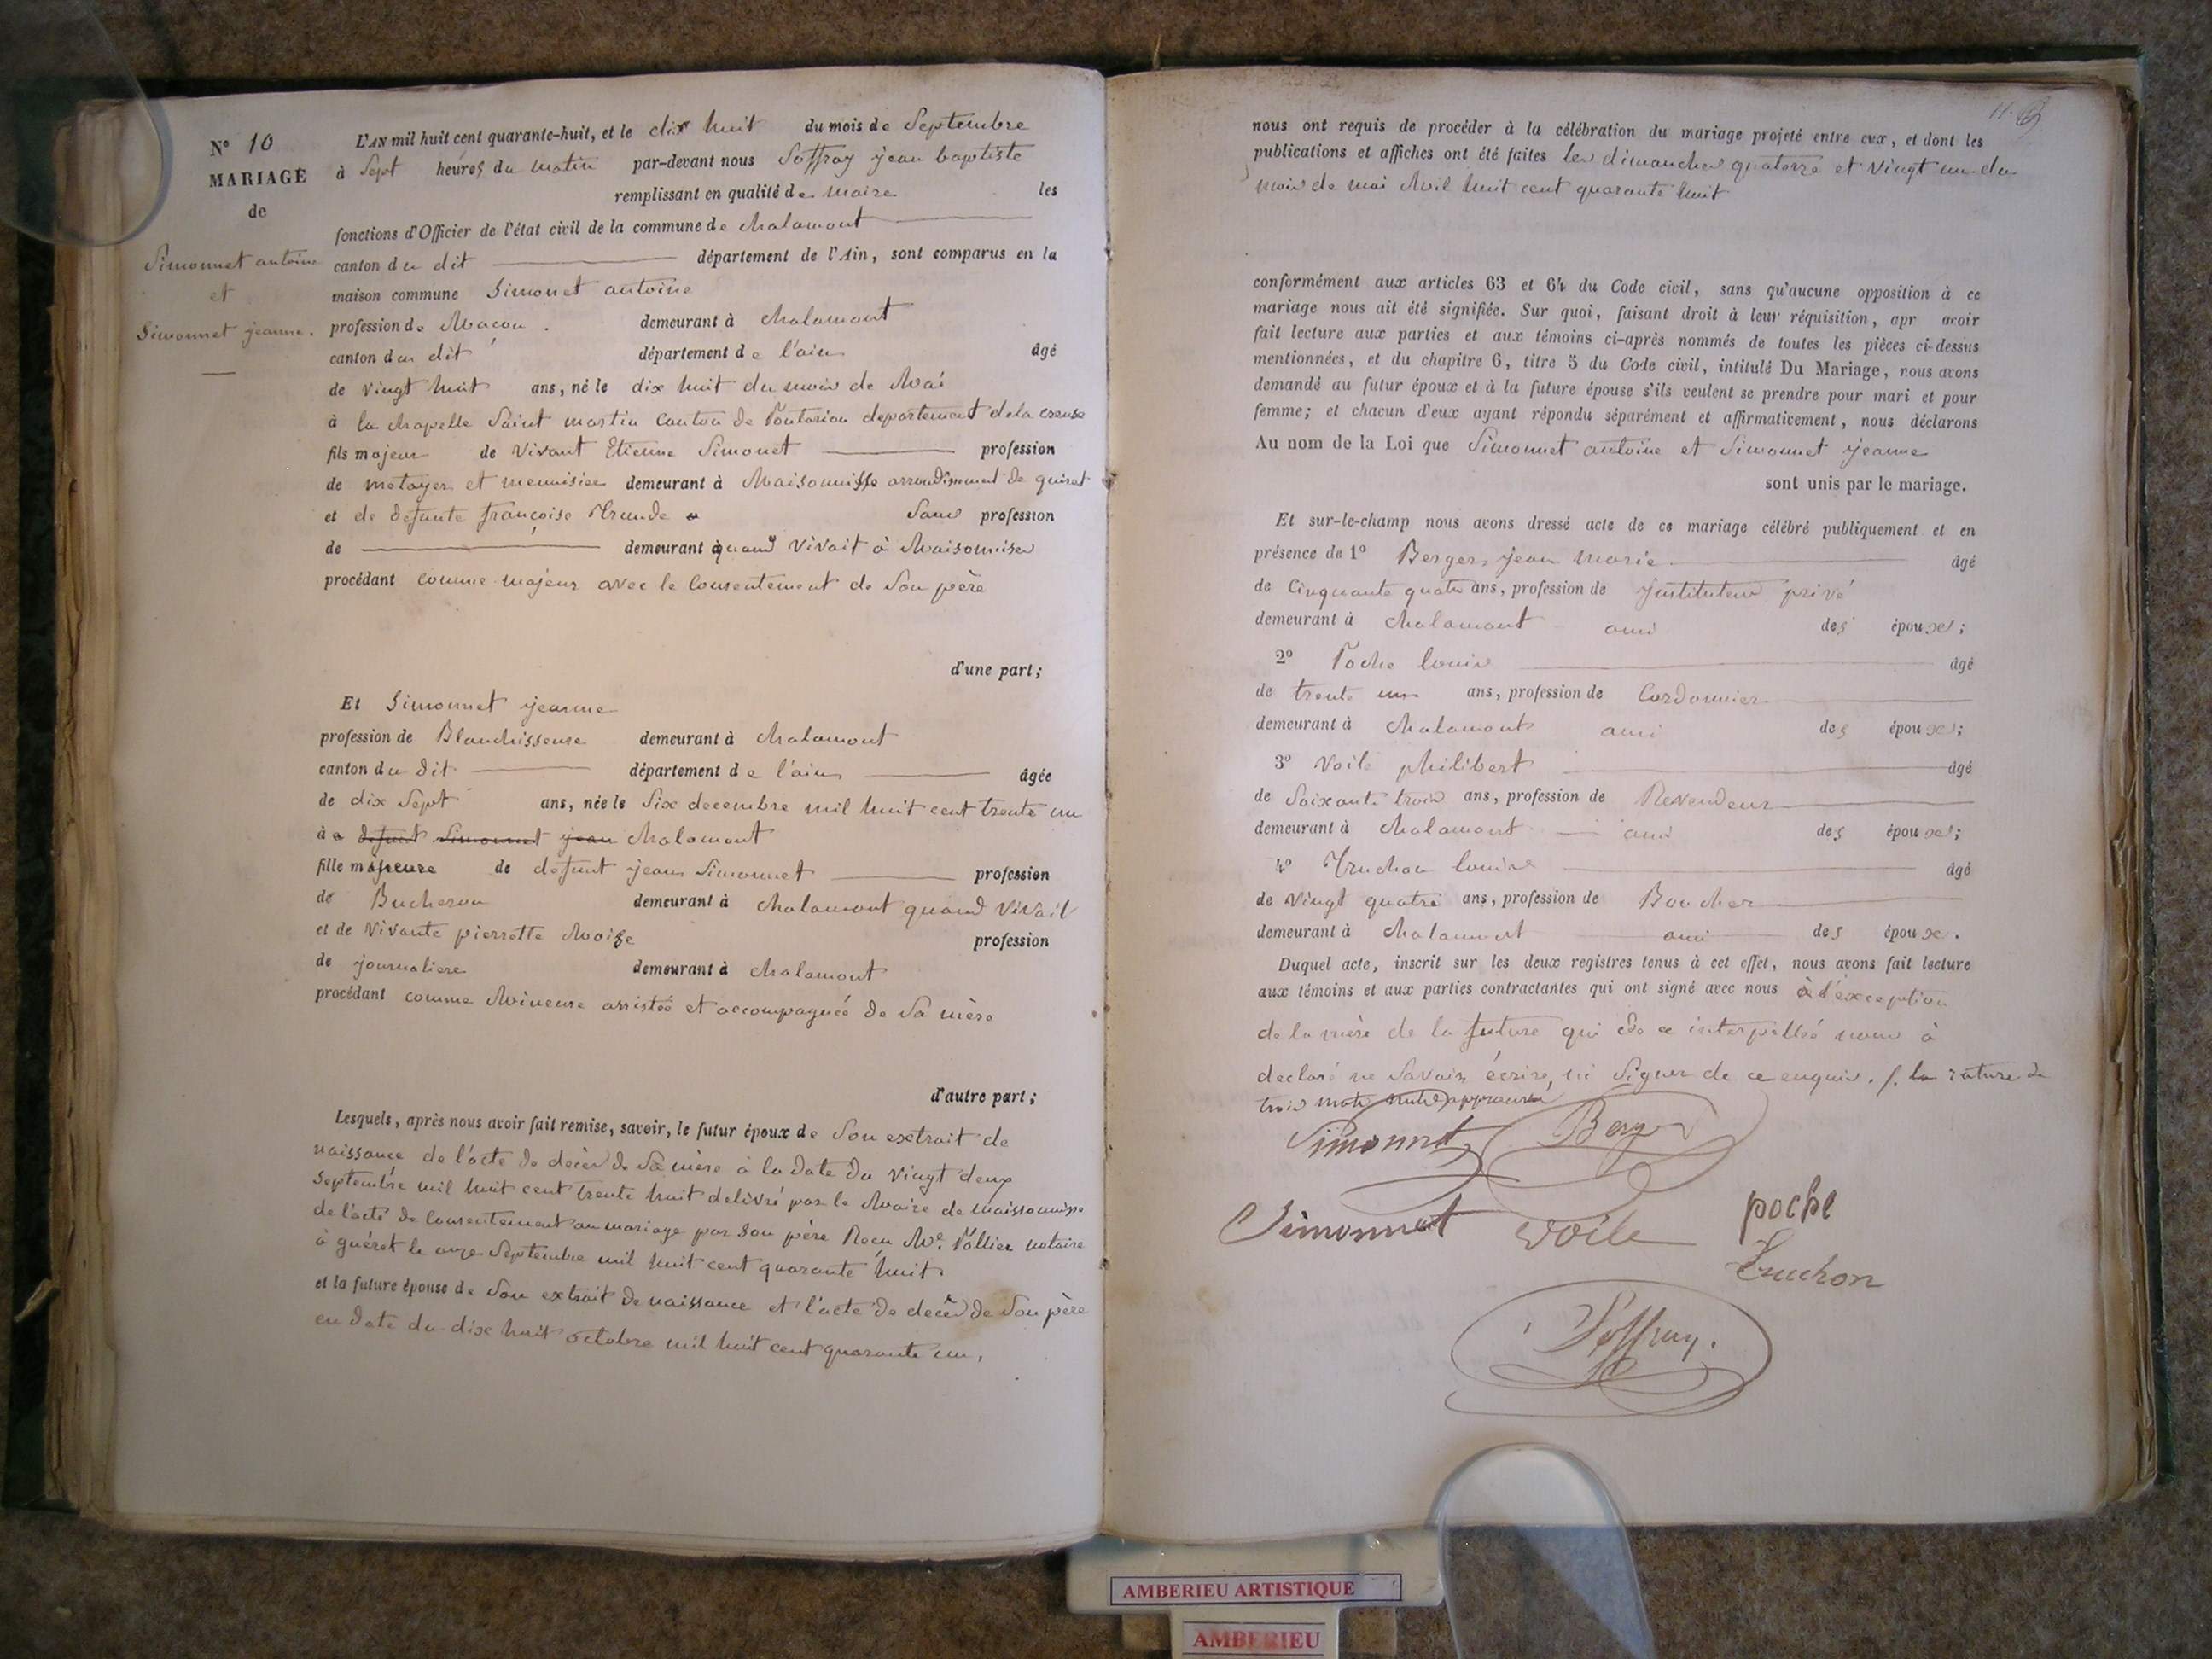 N° 10
MARIAGE
de
Simonnet antoine
et
Simonnet jeanne.
L'AN mil huit cent quarante-huit, et le dix huit du mois de Septembre
à Sept heures du matin par-devant nous Soffray jean baptiste
remplissant en qualité de maire les
fonctions d'Officier de l'état civil de la commune de chalamont
canton du dit département de l'Ain, sont comparus en la
maison commune Simonet antoine
profession de Macon. demeurant à chalamont
canton du dit département de l'ain âgé
de vingt huit ans, né le dix huit du mois de Mai
à la chapelle Saint martin Canton de Pontarion departement de la creuse
fils majeur de vivant Etienne Simonet profession
de metayer et menuisier demeurant à Maisonnisse arrondissement de guéret
et de defunte françoise Trunde Sans profession
de demeurant à quand vivait à Maisonnisse
procédant comme majeur avec le Consentement de Son père
d'une part;
Et Simonnet jeanne
profession de Blanchisseuse demeurant à chalamont
canton du dit département de l'ain âgée
de dix Sept ans, née le Six decembre mil huit cent trente un
à defunt Simonnet jean chalamont
fille mineure de defunt jean Simonnet profession
de Bucheron demeurant à chalamont quand vivait
et de vivante pierrette Moize profession
de journaliere demeurant à chalamont
procédant comme Mineure assistée et accompagnée de Sa mère
d'autre part;
Lesquels, après nous avoir fait remise, savoir, le futur époux de Son extrait de
naissance de l'acte de décès de Sa mère à la date du vingt deux
Septembre mil huit cent trente huit delivré par le Maire de maisonnisse
de l'acte de Consentement au mariage par Son père Recu Me. Pollier notaire
à guéret le onze Septembre mil huit cent quarante huit.
et la future épouse de Son extrait de naissance et l'acte de decès de Son père
en date du dix huit octobre mil huit cent quarante un,
nous ont requis de procéder à la célébration du mariage projeté entre eux, et dont les
publications et affiches ont été faites les dimanches quatorze et vingt un du
mois de mai Mil huit cent quarante huit
conformément aux articles 63 et 64 du Code civil, sans qu'aucune opposition à ce
mariage nous ait été signifiée. Sur quoi, faisant droit à leur réquisition, apr avoir
fait lecture aux parties et aux témoins ci-après nommés de toutes les pièces ci-dessus
mentionnées, et du chapitre 6, titre 5 du Code civil, intitulé Du Mariage, nous avons
demandé au futur époux et à la future épouse s'ils veulent se prendre pour mari et pour
femme; et chacun d'eux ayant répondu séparément et affirmativement, nous déclarons
Au nom de la Loi que Simonnet antoine et Simonnet jeanne
sont unis par le mariage.
Et sur-le-champ nous avons dressé acte de ce mariage célébré publiquement et en
présence de 1° Berger jean marie âgé
de Cinquante quatre ans, profession de jnstituteur privé
demeurant à chalamont ami des époux;
2° Poche louis âgé
de trente un ans, profession de Cordonnier
demeurant à chalamont ami des époux;
3° Voile philibert âgé
de Soixante trois ans, profession de Revendeur
demeurant à chalamont ami des époux;
4° Truchon louis âgé
de vingt quatre ans, profession de Boucher
demeurant à chalamont ami des époux.
Duquel acte, inscrit sur les deux registres tenus à cet effet, nous avons fait lecture
aux témoins et aux parties contractantes qui ont signé avec nous à l'exception
de la mère de la future qui de ce interpellée nous à
declaré ne Savoir écrire, ni Signer de ce enquis. la rature de
trois mots approuvée
Simonnet Berger
Simonnet voile poche
Truchon
Soffray.
AMBERIEU ARTISTIQUE
AMBERIEU